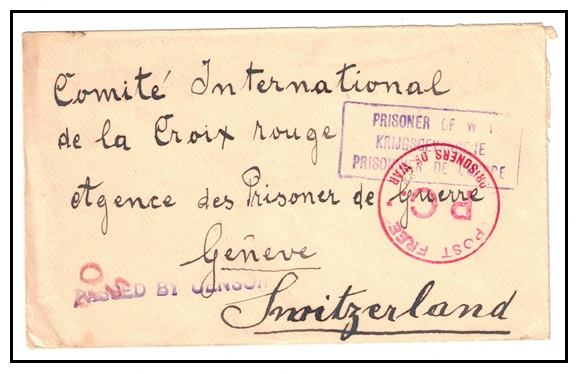 Comité International
de la Croix rouge
Agence des Prisoner de Guerre
Genève
Switzerland
PRISONER OF
PRISONER DE
POST FREE
PRISONERS OF WAR
P C
PASSED BY CENSOR